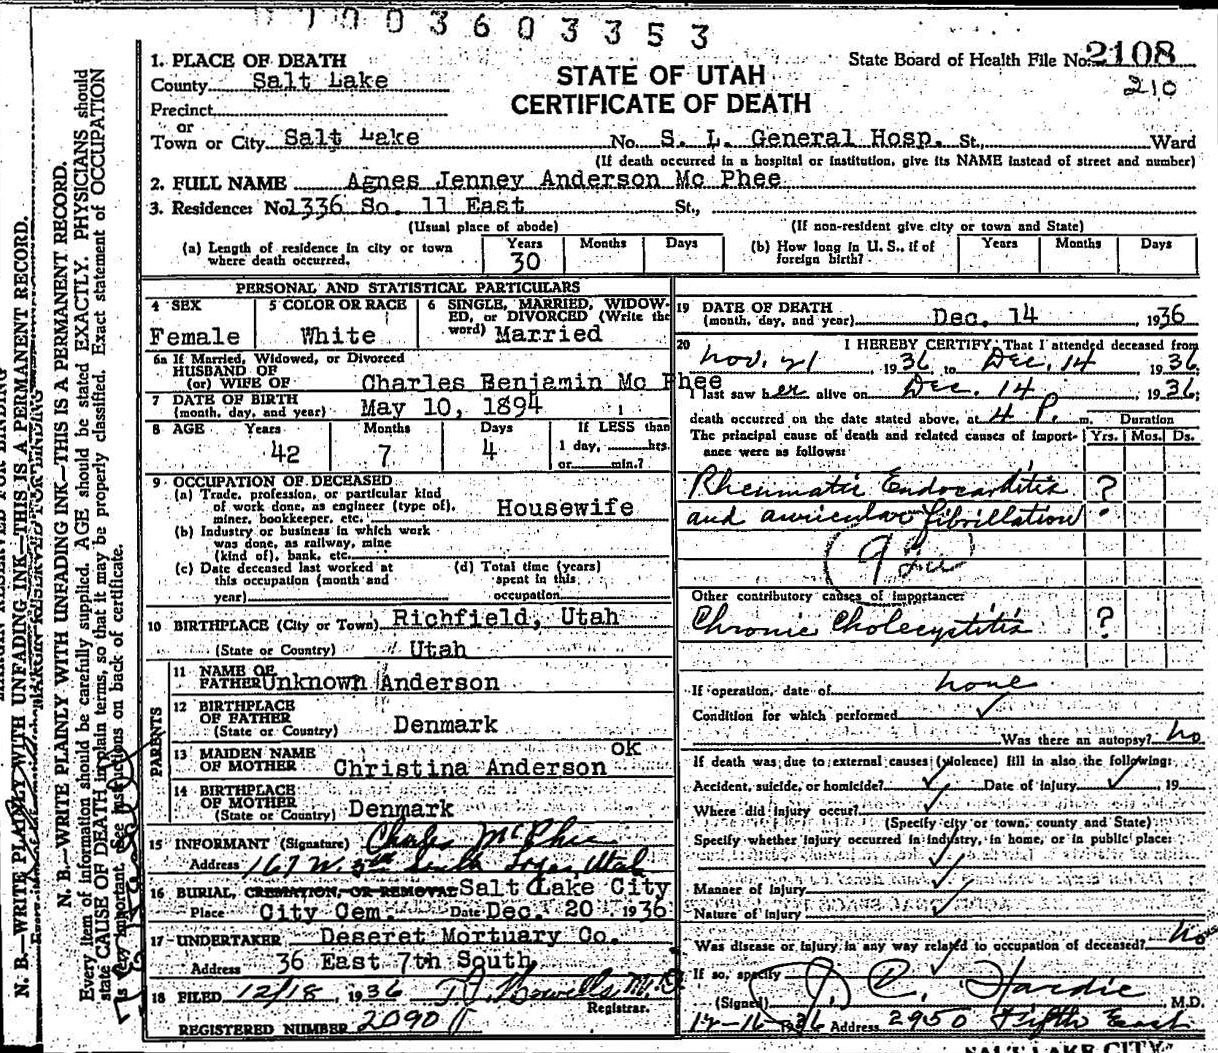 7003603353
State Board of Health File No. 2108
210
STATE OF UTAH
CERTIFICATE OF DEATH
1. PLACE OF DEATH
County Salt Lake
Precinct
or
Town or City Salt Lake No. S. L. General Hosp. St., Ward
(If death occurred in a hospital or institution, give its NAME instead of street and number)
2. FULL NAME Agnes Jenney Anderson Mc Phee
3. Residence: No. 1336 So. 11 East St.,
(Usual place of abode) (If non-resident give city or town and State)
(a) Length of residence in city or town where death occurred. Years 30 Months Days
(b) How long in U. S., if of foreign birth? Years Months Days
PERSONAL AND STATISTICAL PARTICULARS
4 SEX Female
5 COLOR OR RACE White
6 SINGLE, MARRIED, WIDOWED, or DIVORCED (Write the word) Married
6a If Married, Widowed, or Divorced
HUSBAND OF
(or) WIFE OF Charles Benjamin Mc Phee
7 DATE OF BIRTH
(month, day, and year) May 10, 1894
8 AGE Years 42 Months 7 Days 4 If LESS than 1 day, hrs. or min.?
9 OCCUPATION OF DECEASED
(a) Trade, profession, or particular kind of work done, as engineer (type of), miner, bookkeeper, etc. Housewife
(b) Industry or business in which work was done, as railway, mine (kind of), bank, etc.
(c) Date deceased last worked at this occupation (month and year)
(d) Total time (years) spent in this occupation
10 BIRTHPLACE (City or Town) Richfield, Utah
(State or Country) Utah
PARENTS
11 NAME OF FATHER Unknown Anderson
12 BIRTHPLACE OF FATHER
(State or Country) Denmark
13 MAIDEN NAME OF MOTHER Christina Anderson
OK
14 BIRTHPLACE OF MOTHER
(State or Country) Denmark
15 INFORMANT (Signature) Charles McPhee
Address 167 W. 3rd South Logan, Utah
16 BURIAL, CREMATION, OR REMOVAL Salt Lake City
Place City Cem. Date Dec. 20 1936
17 UNDERTAKER Deseret Mortuary Co.
Address 36 East 7th South
18 FILED 12/18, 1936
Registrar.
REGISTERED NUMBER 2090
19 DATE OF DEATH
(month, day, and year) Dec. 14, 1936
20 I HEREBY CERTIFY, That I attended deceased from
Nov. 21 1936 to Dec. 14 1936
I last saw her alive on Dec. 14, 1936;
death occurred on the date stated above, at 4 P. m. Duration
The principal cause of death and related causes of importance were as follows: Yrs. Mos. Ds.
Rheumatic Endocarditis ?
and auricular fibrillation
Other contributory causes of importance:
Chronic Cholecystitis ?
If operation, date of none
Condition for which performed
Was there an autopsy? No
If death was due to external causes (violence) fill in also the following:
Accident, suicide, or homicide? Date of injury, 19
Where did injury occur?
(Specify city or town, county and State)
Specify whether injury occurred in industry, in home, or in public place:
Manner of injury
Nature of injury
Was disease or injury in any way related to occupation of deceased? No
If so, specify
(Signed) J. C. Hardie, M.D.
12-16-1936 Address 2950 Fifth East
SALT LAKE CITY
N. B.—WRITE PLAINLY WITH UNFADING INK—THIS IS A PERMANENT RECORD.
N. B.—WRITE PLAINLY WITH UNFADING INK—THIS IS A PERMANENT RECORD.
Every item of information should be carefully supplied. AGE should be stated EXACTLY. PHYSICIANS should
state CAUSE OF DEATH in plain terms, so that it may be properly classified. Exact statement of OCCUPATION
is very important. See instructions on back of certificate.